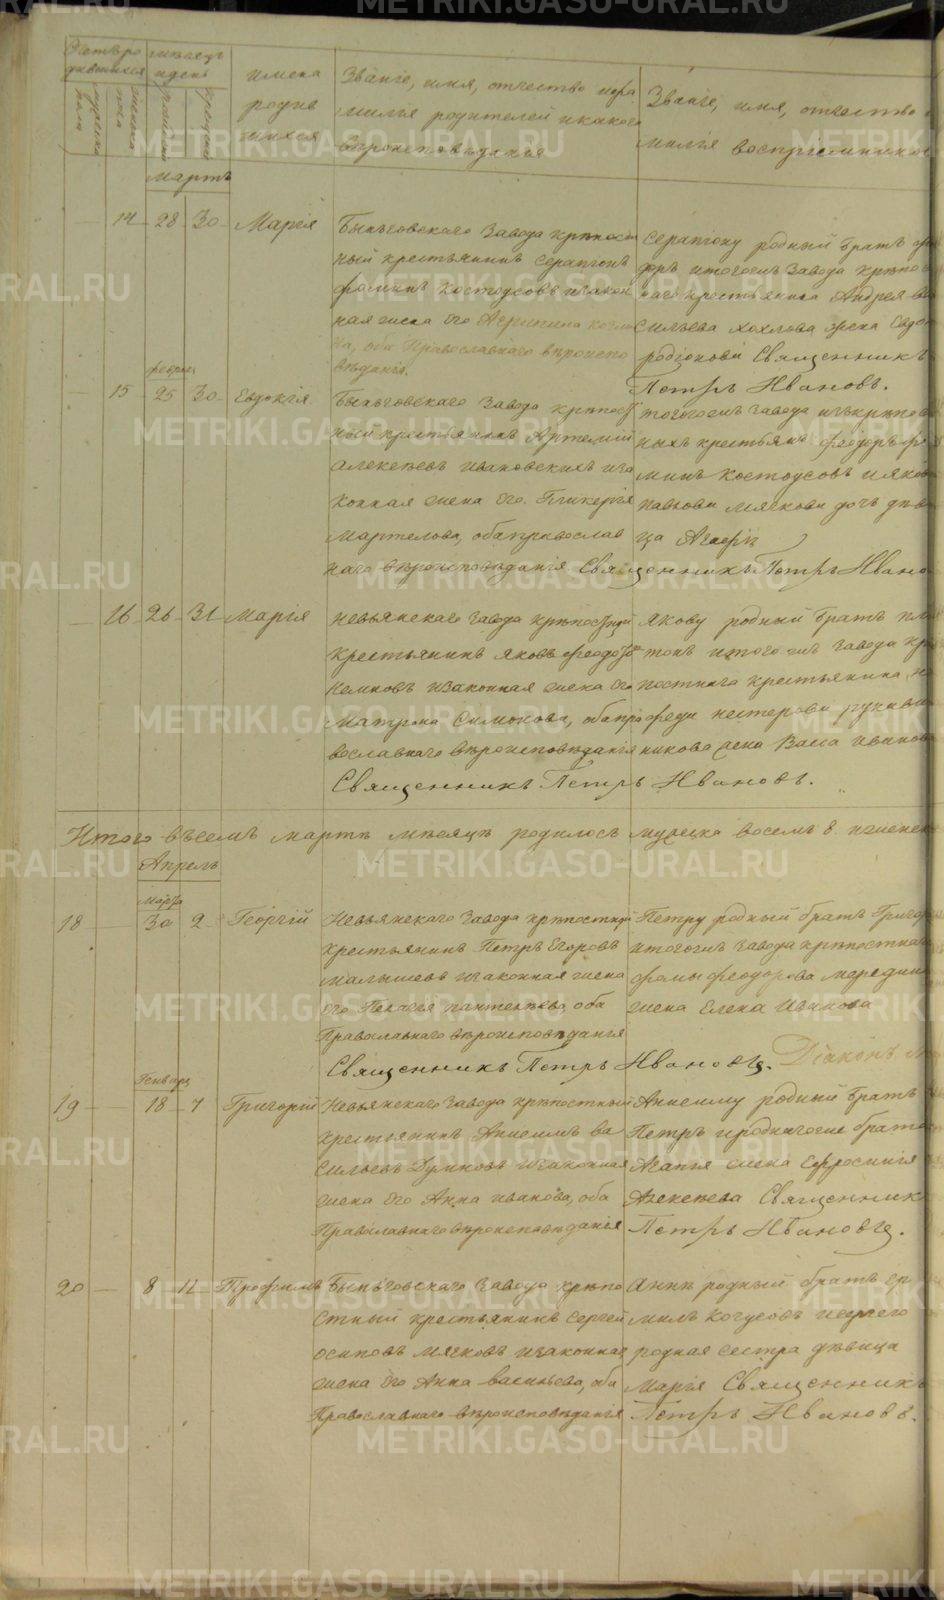 Счетъ ро
дившихся
мужеска
пола
женска
пола
мѣсяцъ
и день
рожденія
крещенія
имена
родив
шихся
Званіе, имя, отчество и фа
милія родителей и какого
вѣроисповѣданія
Званіе, имя, отчество
милія воспріемников
Мартъ
14 28 30 Марія
Быньговскаго Завода крѣпост
ный крестьянинъ Серапіонъ
фоминъ Костоусовъ и закон
ная жена его Агрипина
на, оба Православнаго вѣроиспо
вѣданія.
Серапіону родный братъ
форъ и тогожъ Завода крѣпос
наго крестьянина Андрея Ва
сильева Хохлова жена Евдо
родіонова Священникъ
Петръ Ивановъ.
феврал
15 25 30 Евдокія
Быньговскаго Завода крѣпост
ной крестьянинъ Артемій
Алексѣевъ Ивановскихъ и за
конная жена его Гликерія
Мартелова, оба православ
наго вѣроисповѣданія Священникъ Петръ Ивано
тогожъ завода изъ крѣпос
ныхъ крестьянъ феодоръ фо
минъ Костоусовъ и яков
павлова мягкова дочь дѣви
ца Агафія
16 26 31 Марія
Невьянскаго Завода крѣпостный
крестьянинъ яковъ феодотов
немковъ и законная жена его
Матрона Симонова, оба пра
вославнаго вѣроисповѣданія
Священникъ Петръ Ивановъ.
якову родный братъ пла
тонъ и тогожъ Завода кр
постнаго крестьянина
федя нестерова рукави
никова жена Васа иванов
Итого въ семъ мартѣ мѣсяцѣ родилось мужеска восемь 8. и женск
Апрель
марта
18 30 2 Георгій
Невьянскаго Завода крѣпостный
крестьянинъ Петръ Егоровъ
малышевъ и законная жена
его Пелагея пантелѣева, оба
Православнаго вѣроисповѣданія
Священникъ Петръ Ивановъ. Діаконъ
Петру родный братъ Григор
и тогожъ Завода крѣпостнаго
фомы феодорова мередин
жена Елена Иванова
Генвар
19 18 7 Григорій
Невьянскаго Завода крѣпостный
крестьянинъ Анисимъ ва
сильевъ Думновъ и законная
жена его Анна иванова, оба
Православнаго вѣроисповѣданія
Анисиму родный братъ
Петръ и роднагоже брата
Агапія жена Ефросинія
Алексѣева Священник
Петръ Ивановъ.
20 8 11 Трофимъ
Быньговскаго Завода крѣпо
стный крестьянинъ Сергей
осиповъ мягковъ и законная
жена его Анна васильева, оба
Православнаго вѣроисповѣданія
Аннѣ родный братъ ер
милъ Когусовъ и ея
родная сестра дѣвица
Марія Священникъ
Петръ Ивановъ.
METRIKI.GASO-URAL.RU